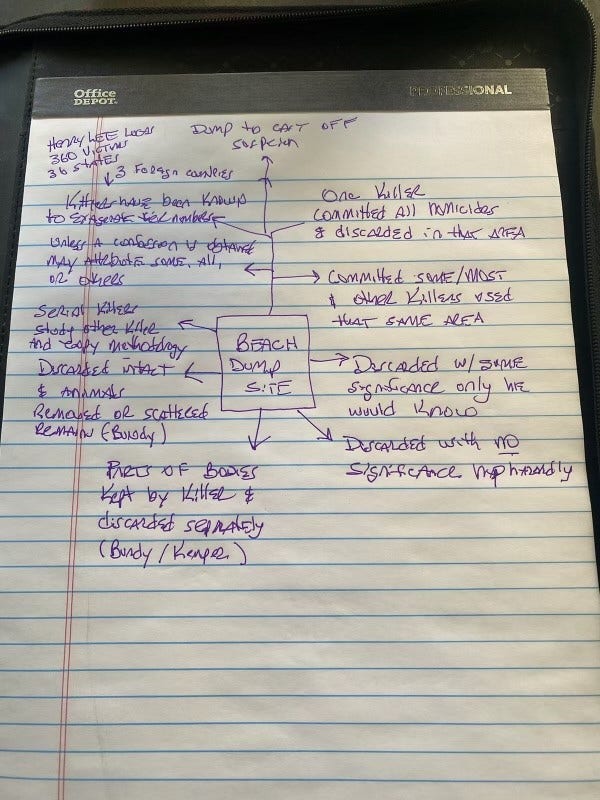 Office
DEPOT.
PROFESSIONAL
HENRY LEE LUCAS
360 VICTIMS
36 STATES
3 Foreign countries
DUMP to CAST OFF
SUSPICION
Killers have been known
to exagerate their numbers
One Killer
committed All Homicides
& discarded in that AREA
Unless A confession is obtained
MAY Attribute SOME, ALL,
OR others
Committed SOME/MOST
& other Killers used
that SAME AREA
SERIAL Killers
study other Killer
And copy methodology
BEACH
DUMP
SITE
Discarded intact
& ANIMALS
Removed OR scattered
REMAIN (Bundy)
Discarded w/ SOME
significance only he
would Know
Discarded with NO
Significance
PARTS OF BODIES
Kept by Killer &
discarded seprately
(Bundy / Kemper)